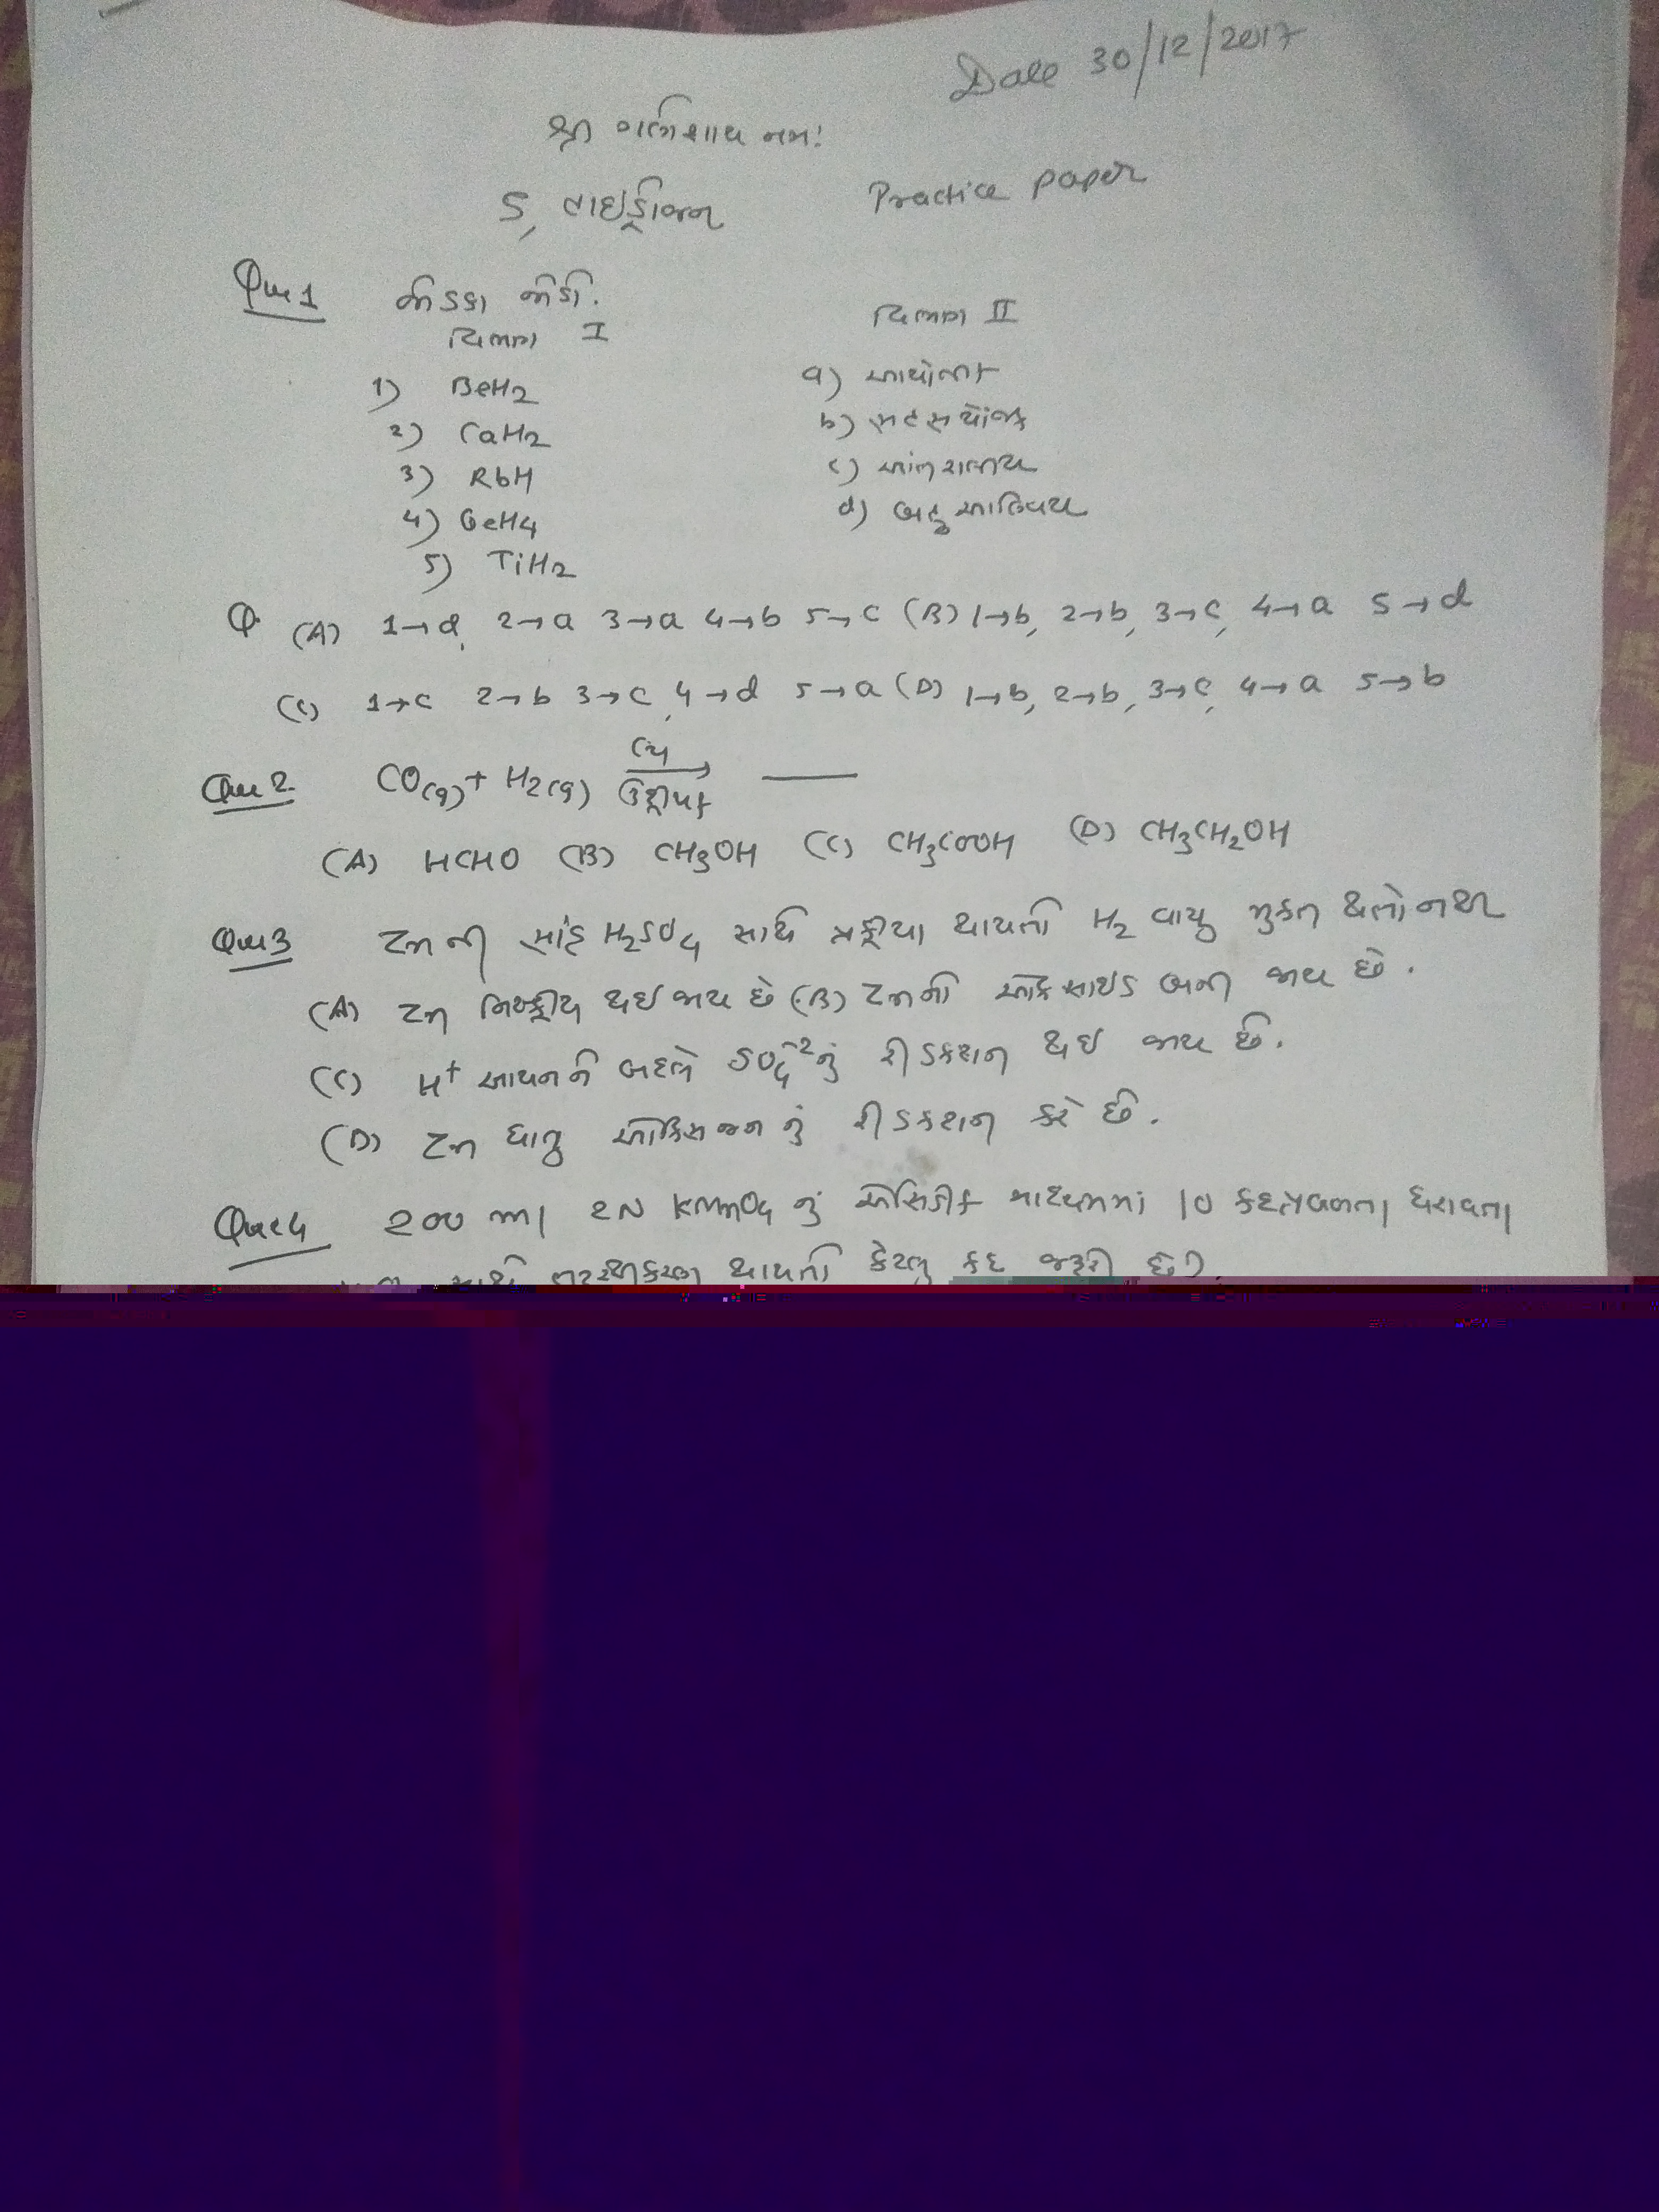 Date 30/12/2017
શ્રી ગણેશાય નમઃ
5, હાઇડ્રોજન Practice paper
Que 1 જોડકા જોડો.
વિભાગ I વિભાગ II
1) BeH2 a) આયોનીક
2) CaH2 b) સહસંયોજક
3) RbH c) આંતરાલીય
4) GeH4 d) બહુઆણ્વિય
5) TiH2
Q. (A) 1→d, 2→a 3→a 4→b 5→c (B) 1→b, 2→b, 3→c, 4→a 5→d
(C) 1→c 2→b 3→c, 4→d 5→a (D) 1→b, 2→b, 3→c, 4→a 5→b
Que 2. CO(g) + H2(g) ⟶ ____
ઉદ્દીપક
(A) HCHO (B) CH3OH (C) CH3COOH (D) CH3CH2OH
Que 3 Zn ની સાંદ્ર H2SO4 સાથે પ્રક્રીયા થાયતો H2 વાયુ મુકત થતો નથી
(A) Zn નિષ્ક્રીય થઇ જાય છે (B) Zn નો ઓકસાઇડ બની જાય છે.
(C) H+ આયનને બદલે SO4-2 નું રીડકશન થઇ જાય છે.
(D) Zn ધાતુ ઓકિસજન નું રીડકશન કરે છે.
Que 4 200 ml 2N KMnO4 નું એસિડીક માધ્યમમાં 10 કદપ્રબળતા ધરાવતા
સાથે તટસ્થીકરણ થાયતો કેટલુ કદ જરૂરી છે?